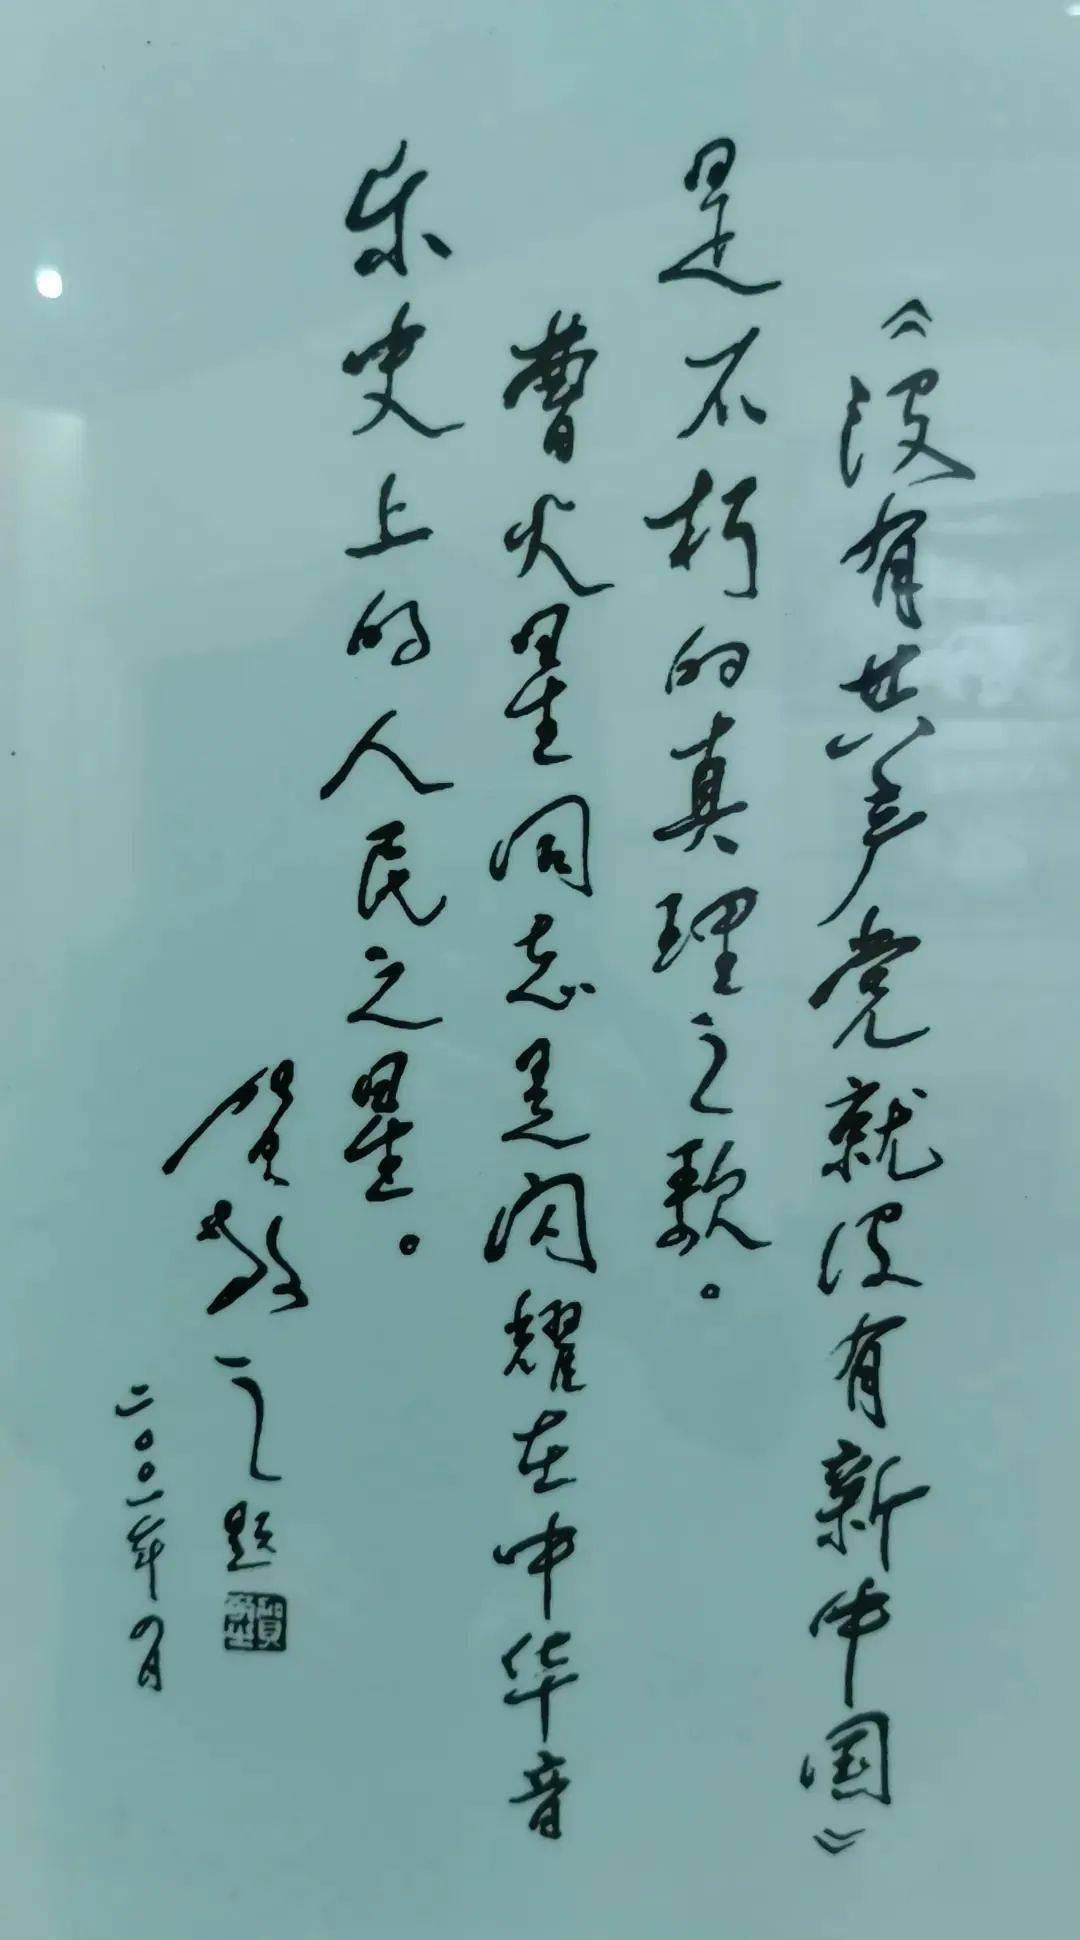 《没有共产党就没有新中国》
是不朽的真理之歌。
曹火星同志是闪耀在中华音
乐史上的人民之星。
贺敬之题
二〇〇一年八月